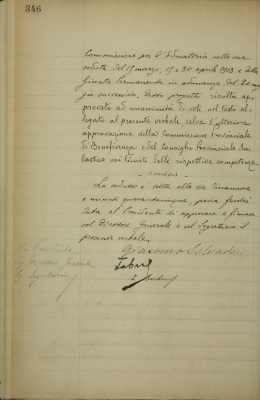 346
Commissione per l'Educatorio nelle sue
sedute del 15 marzo, 15 e 30 aprile 1913 e dalla
Giunta Permanente in adunanza del 20 mag
gio successivo. Detto progetto risulta ap-
provato ad unanimità di voti nel testo al-
legato al presente verbale salva l'ulteriore
approvazione della Commissione Provinciale
di Beneficenza e del Consiglio Provinciale Sco-
lastico nei limiti delle rispettive competenze.
La seduta è tolta alle ore
e minuti quarantacinque, previa facol-
tà al Presidente di approvare e firmare
col Direttore Generale e col Segretario il
presente verbale.
Il Presidente
Giacomo Salvadori
Il Direttore Generale
Il Segretario